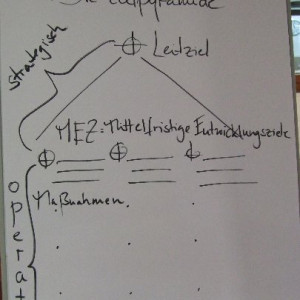 Die Zielpyramide
Leitziel
strategisch
MEZ: Mittelfristige Entwicklungsziele
Maßnahmen
operat